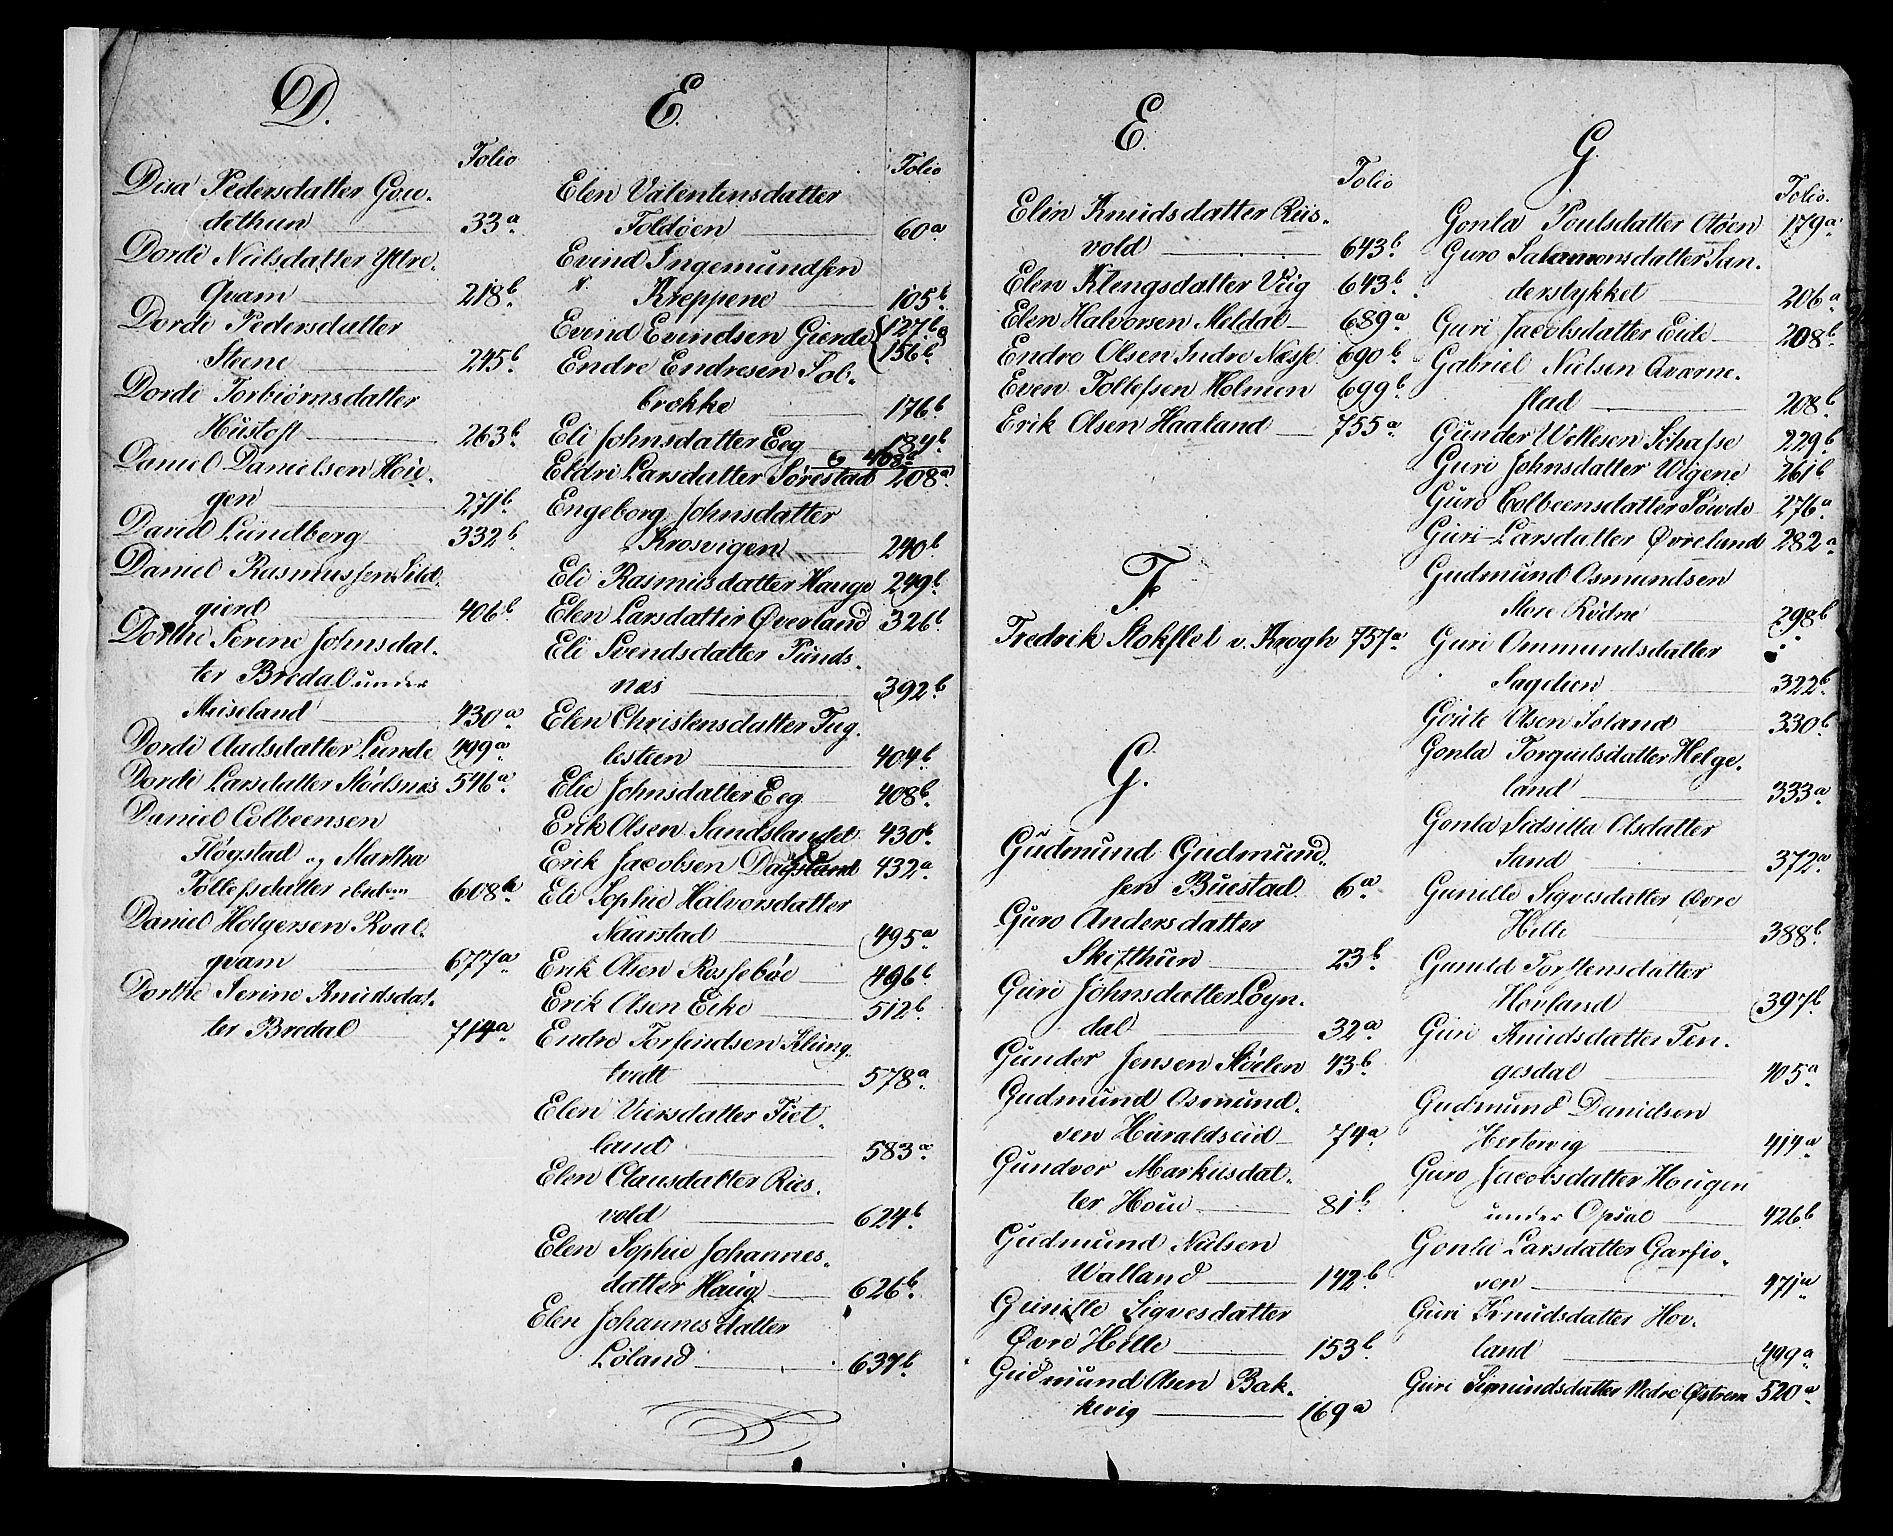 D.
Folio
Disa Pedersdatter Gou-
dethun 33a
Dorde Nielsdatter Yttre-
Qvam 218b
Dorde Pedersdatter
Steene 245b
Dorde Torbiörnsdatter
Hustoft 263b
Daniel Danielsen Hou-
gen 271b
David Lundberg 332b
Daniel Rasmussen Sild-
gierd 406b
Dorthe Serine Johnsdat-
ter Bredal under
Meiseland 430a
Dordi Aadsdatter Lunde 499a
Dordi Larsdatter Stödsnæs 546a
Daniel Colbeensen
Fløgstad og Martha
Tollefsdatter ibidem 608b
Daniel Holgersen Roal-
qvam 677a
Dorthe Serine Knudsdat-
ter Bredal 714a
E.
Folio
Elen Valentensdatter
Foldøen 60a
Evind Ingemundsen
Kreppene 105b
Evind Evindsen Gierde 127b
156b
Endre Endresen Sol-
brekke 176b
Eli Johnsdatter Eeg 184b
408b
Eldri Larsdatter Sørestad 208a
Engeborg Johnsdatter
Krosvigen 240b
Eli Rasmusdatter Hauge 249b
Elen Larsdatter Øverland 326b
Eli Svendsdatter Punds-
næs 392b
Elen Christensdatter Fug-
lesteen 404b
Elie Johnsdatter Eeg 408b
Erik Olsen Sandslandet 430b
Erik Jacobsen Dagsland 432a
Eli Sophie Halvorsdatter
Naarstad 495a
Erik Olsen Rossebøe 496b
Erik Olsen Eike 512b
Endre Torfindsen Klung-
tvedt 578a
Elen Viersdatter Fiet-
land 583a
Elen Clausdatter Ries-
vold 624b
Elen Sophie Johannes-
datter Haug 626b
Elen Johannesdatter
Løland 637b
E.
Folio
Elen Knudsdatter Riis-
vold 643b
Elen Klengsdatter Viig 643b
Elen Halvorsen Meldal 689a
Endre Olsen Indre Næsse 690b
Even Tollefsen Holmen 699b
Erik Olsen Haaland 755a
F.
Fredrik Stokflet v. Krogh 757a
G.
Gudmund Gudmund-
sen Buestad 6a
Guro Andersdatter
Skifthun 23b
Guri Johnsdatter Løyn-
dal 32a
Gunder Jensen Støelen 43b
Gudmund Osmund-
sen Haraldseid 74a
Gundvor Markusdat-
ter Houe 81b
Gudmund Nielsen
Walland 142b
Gunille Sigvesdatter
Øvre Hille 153b
Gudmund Olsen Bak-
kevig 169a
G.
Folio.
Gonla Poulsdatter Otøen 179a
Guro Salamonsdatter San-
derstykket 206a
Guri Jacobsdatter Eide 208b
Gabriel Nielsen Qværne-
stad 208b
Gunder Wellesen Schafse 229b
Guri Johnsdatter Wigene 261b
Guro Colbeensdatter Søwde 276a
Guri Larsdatter Øvreland 282a
Gudmund Osmundsen
Store Rødne 298b
Guri Ommundsdatter
Sagelien 322b
Goute Olsen Soland 330b
Gonla Torgielsdatter Helge-
land 333a
Gonla Sidsilla Olsdatter
Sand 372a
Gunille Sigvesdatter Øvre
Hille 388b
Gunild Torstensdatter
Hovland 397b
Guri Knudsdatter Ten-
gesdal 405a
Gudmund Danielsen
Hertervig 414a
Guro Jacobsdatter Hougen
under Opsal 426b
Gonla Larsdatter Garsio-
sen 471a
Guri Knudsdatter Hov-
land 499a
Guri Simundsdatter Nedre Østrem 520a